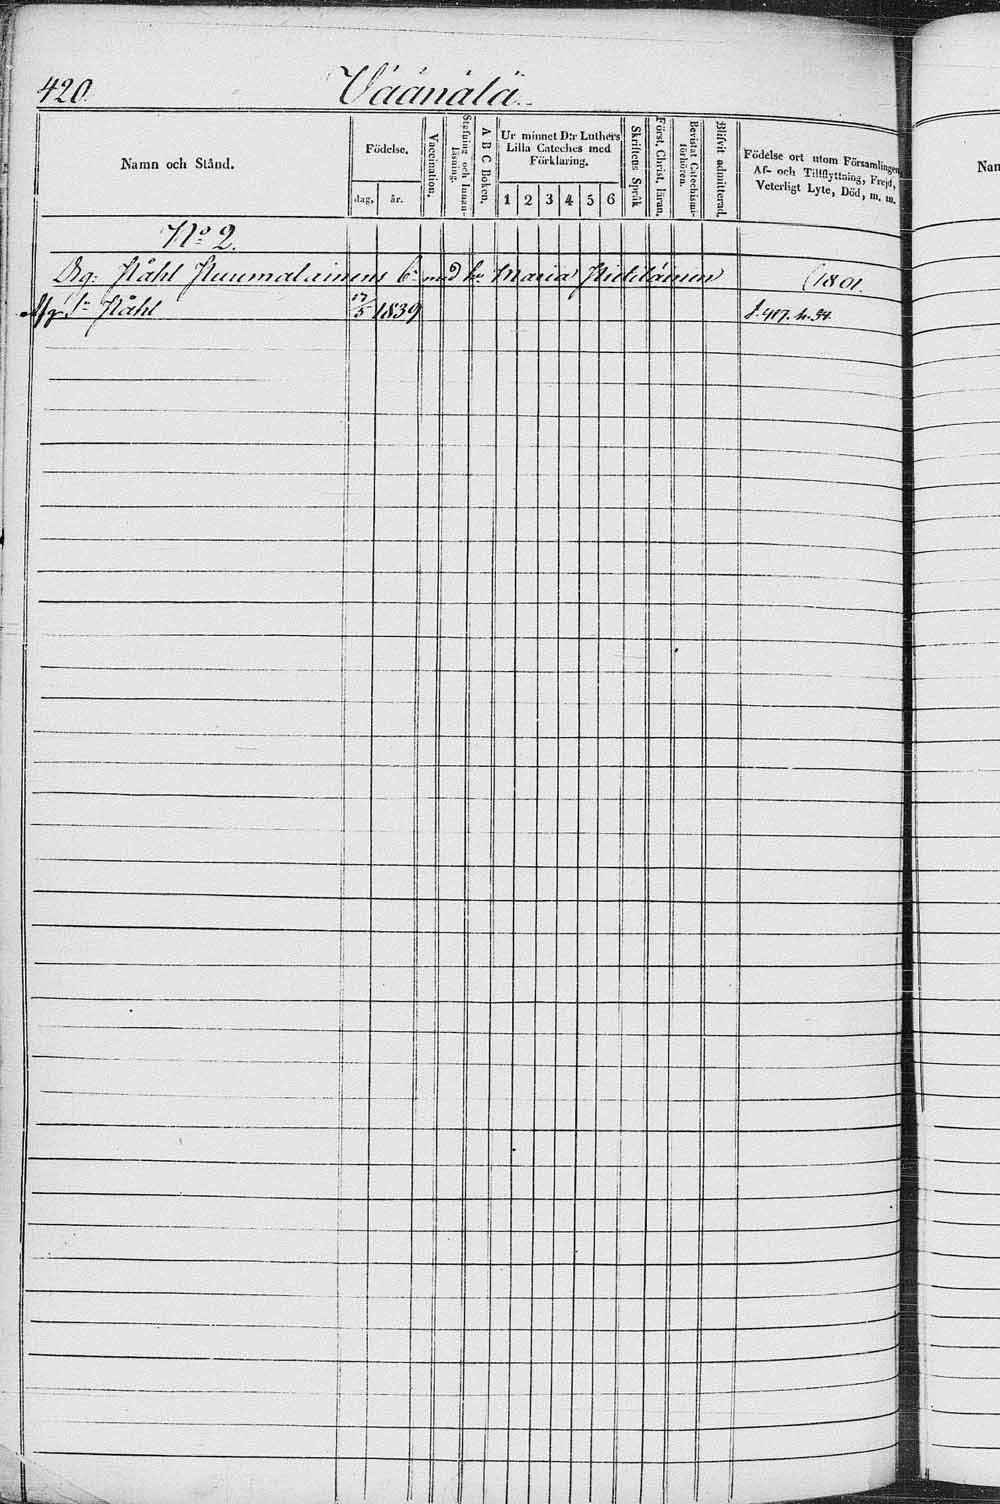 420.
Väänälä
Namn och Stånd.
Födelse.
dag,
år.
Vaccination.
Stafning och Innan-läsning.
A B C Boken.
Ur minnet D:r Luthers
Lilla Cateches med
Förklaring.
1 2 3 4 5 6
Skriftens Språk
Först. Christ. läran.
Bevistat Catechismi-förhören.
Blifvit admitterad.
Födelse ort utom Församlingen,
Af- och Tillflyttning, Frejd,
Veterligt Lyte, Död, m. m.
Nan
No 2.
Ståhl med Maria (1801.
Ståhl 17/5 1839 f. 417. n. 34